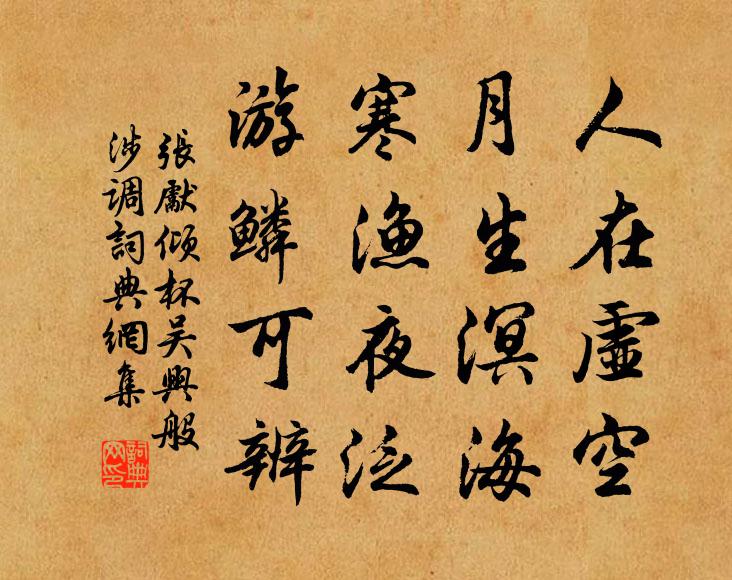 人在虛空
月生溟海
寒漁夜泛
游鱗可辨
張獻傾杯吴興般
涉调詞典網集
詞典網印